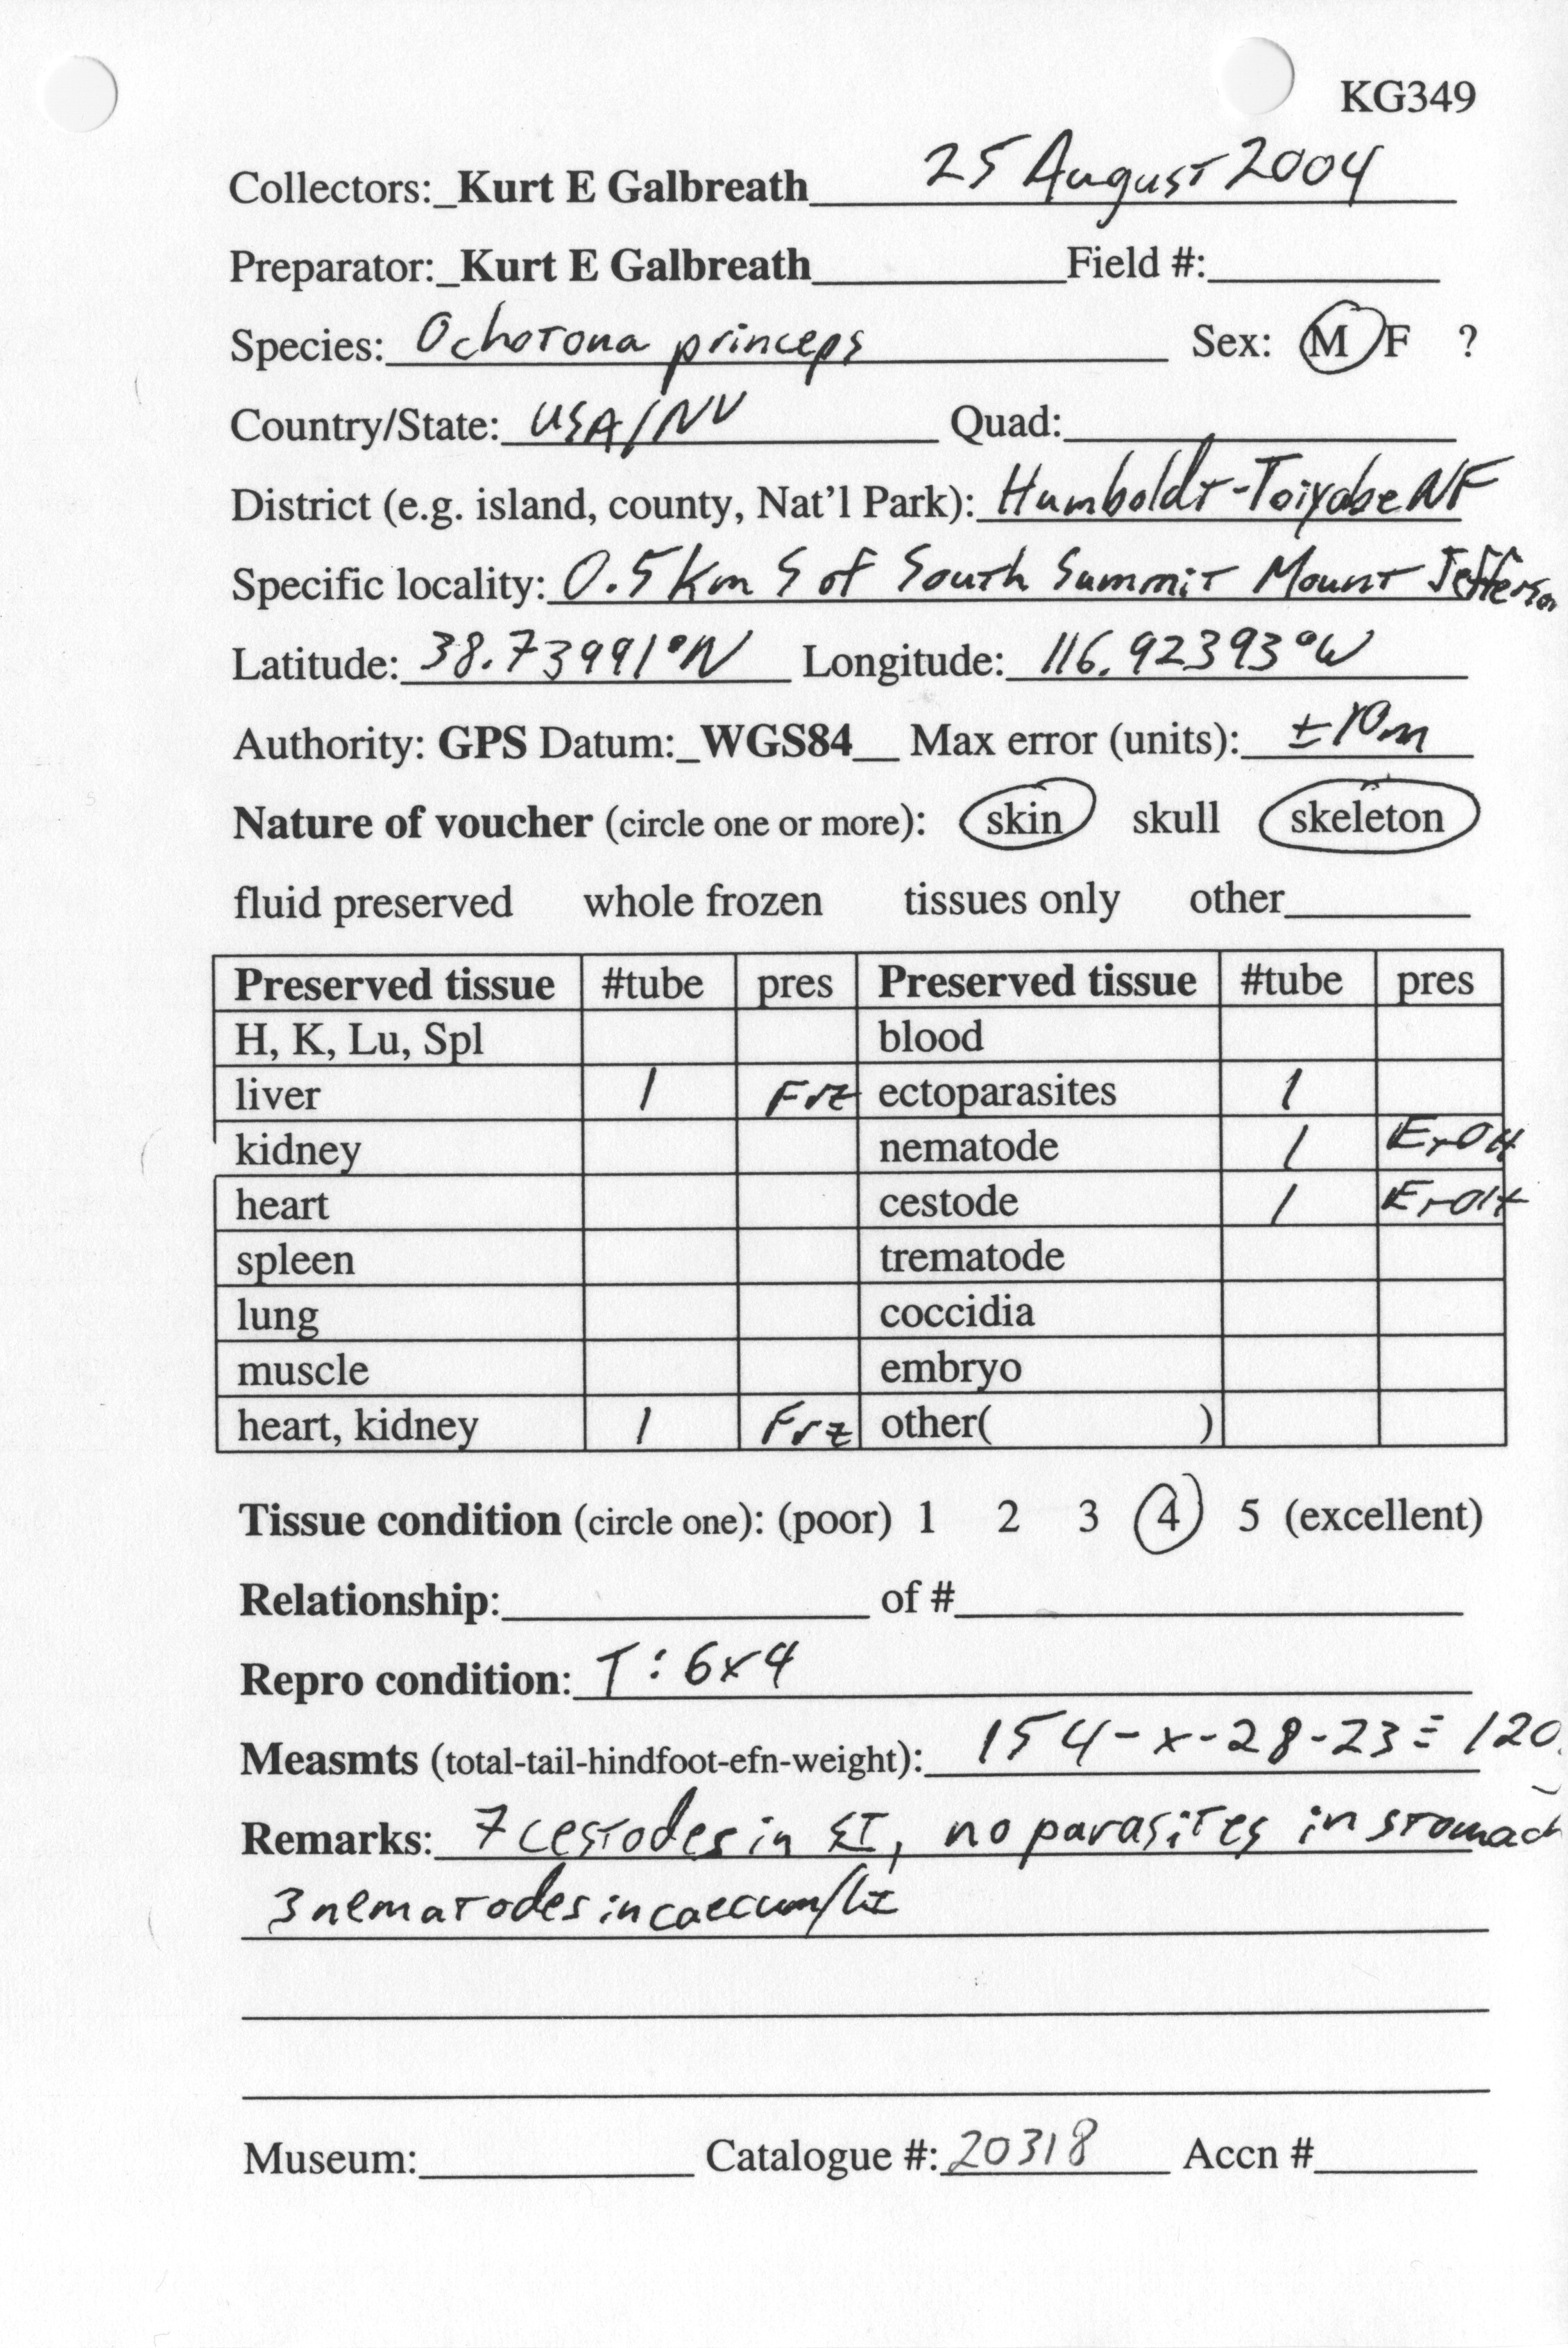 KG349
Collectors:_Kurt E Galbreath 25 August 2004
Preparator:_Kurt E Galbreath Field #:
Species: Ochotona princeps Sex: M F ?
Country/State: USA/NV Quad:
District (e.g. island, county, Nat'l Park): Humboldt-Toiyabe NF
Specific locality: 0.5 km S of South Summit Mount Jefferson
Latitude: 38.73991°N Longitude: 116.92393°W
Authority: GPS Datum:_WGS84__ Max error (units): ±10m
Nature of voucher (circle one or more): skin skull skeleton
fluid preserved whole frozen tissues only other
Preserved tissue #tube pres Preserved tissue #tube pres
H, K, Lu, Spl blood
liver 1 Frz ectoparasites 1
kidney nematode 1 EtOH
heart cestode 1 EtOH
spleen trematode
lung coccidia
muscle embryo
heart, kidney 1 Frz other( )
Tissue condition (circle one): (poor) 1 2 3 4 5 (excellent)
Relationship: of #
Repro condition: T: 6x4
Measmts (total-tail-hindfoot-efn-weight): 154-x-28-23≡120
Remarks: 7 cestodes in SI, no parasites in stomach
3 nematodes in caecum/LI
Museum: Catalogue #: 20318 Accn #